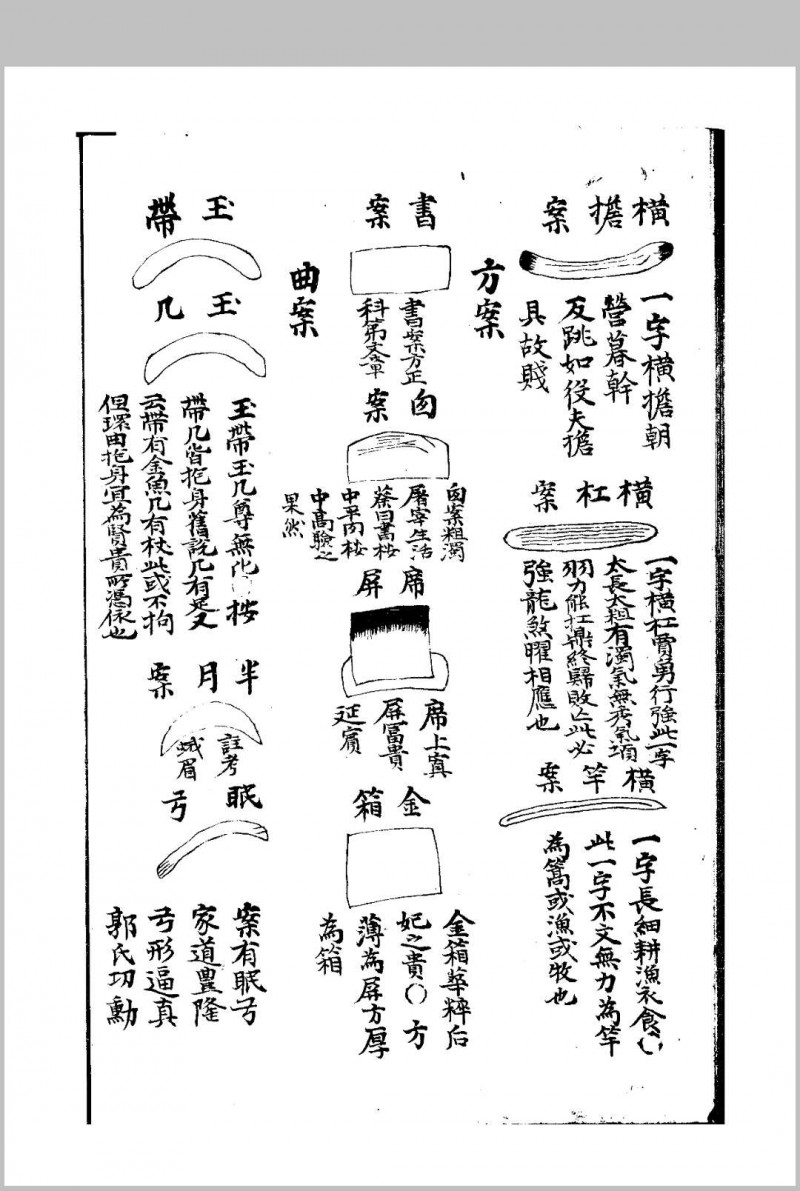 橫擔案
一字橫擔朝
營暮幹
反跳如役夫擔
具故賤
橫杠案
一字橫杠賈勇行強此一字
太長太粗有濁氣無秀氣項
羽力能扛鼎終歸敗亡此必
強龍煞曜相應也
橫竿案
一字長細耕漁衣食〇
此一字不文無力為竿
為篙或漁或牧也
方案
書案
書案方正
科第文章
肉案
肉案粗濁
屠宰生活
蔡曰書桉
中平肉桉
中高驗之
果然
席屏
席上寘
屏富貴
延賓
金箱
金箱華粹后
妃之貴〇方
薄為屏方厚
為箱
曲案
玉帶
玉几
玉帶玉几尊無比 按
帶几皆抱身舊說几有足又
云帶有金魚几有杖此或不拘
但環曲抱身宜為賢貴所憑依也
半月案
註考
蛾眉
眠弓
案有眠弓
家道豐隆
弓形逼真
郭氏功勳